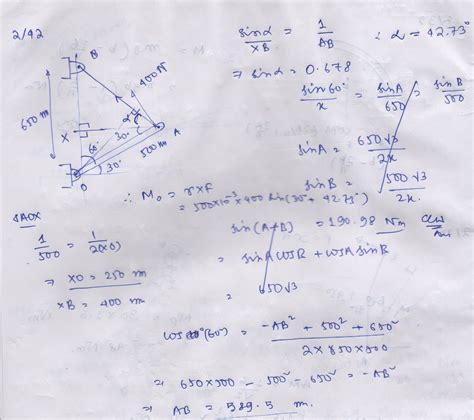 2/42
B
400 N
α
650 m
X
30°
A
60°
500 m
30°
O
sinα / XB = 1 / AB ∴ α = 42.73°
⇒ sinα = 0.678
sin60° / x = sinA / 650 = sinB / 500
sinA = 650√3 / 2x
sinB = 500√3 / 2x
∴ Mo = r×F
= 500×10⁻³ × 400 sin(30°+42.73°)
= 190.98 Nm CCW
Ans
sin(A+B)
= sinA cosB + cosA sinB
= 650√3
ΔAOX
1 / 500 = 1 / 2(XO)
⇒ XO = 250 m
XB = 400 m
cos (60°) = -AB² + 500² + 650² / 2×650×500
⇒ 650×500 - 500² - 650² = -AB²
⇒ AB = 589.5 m.